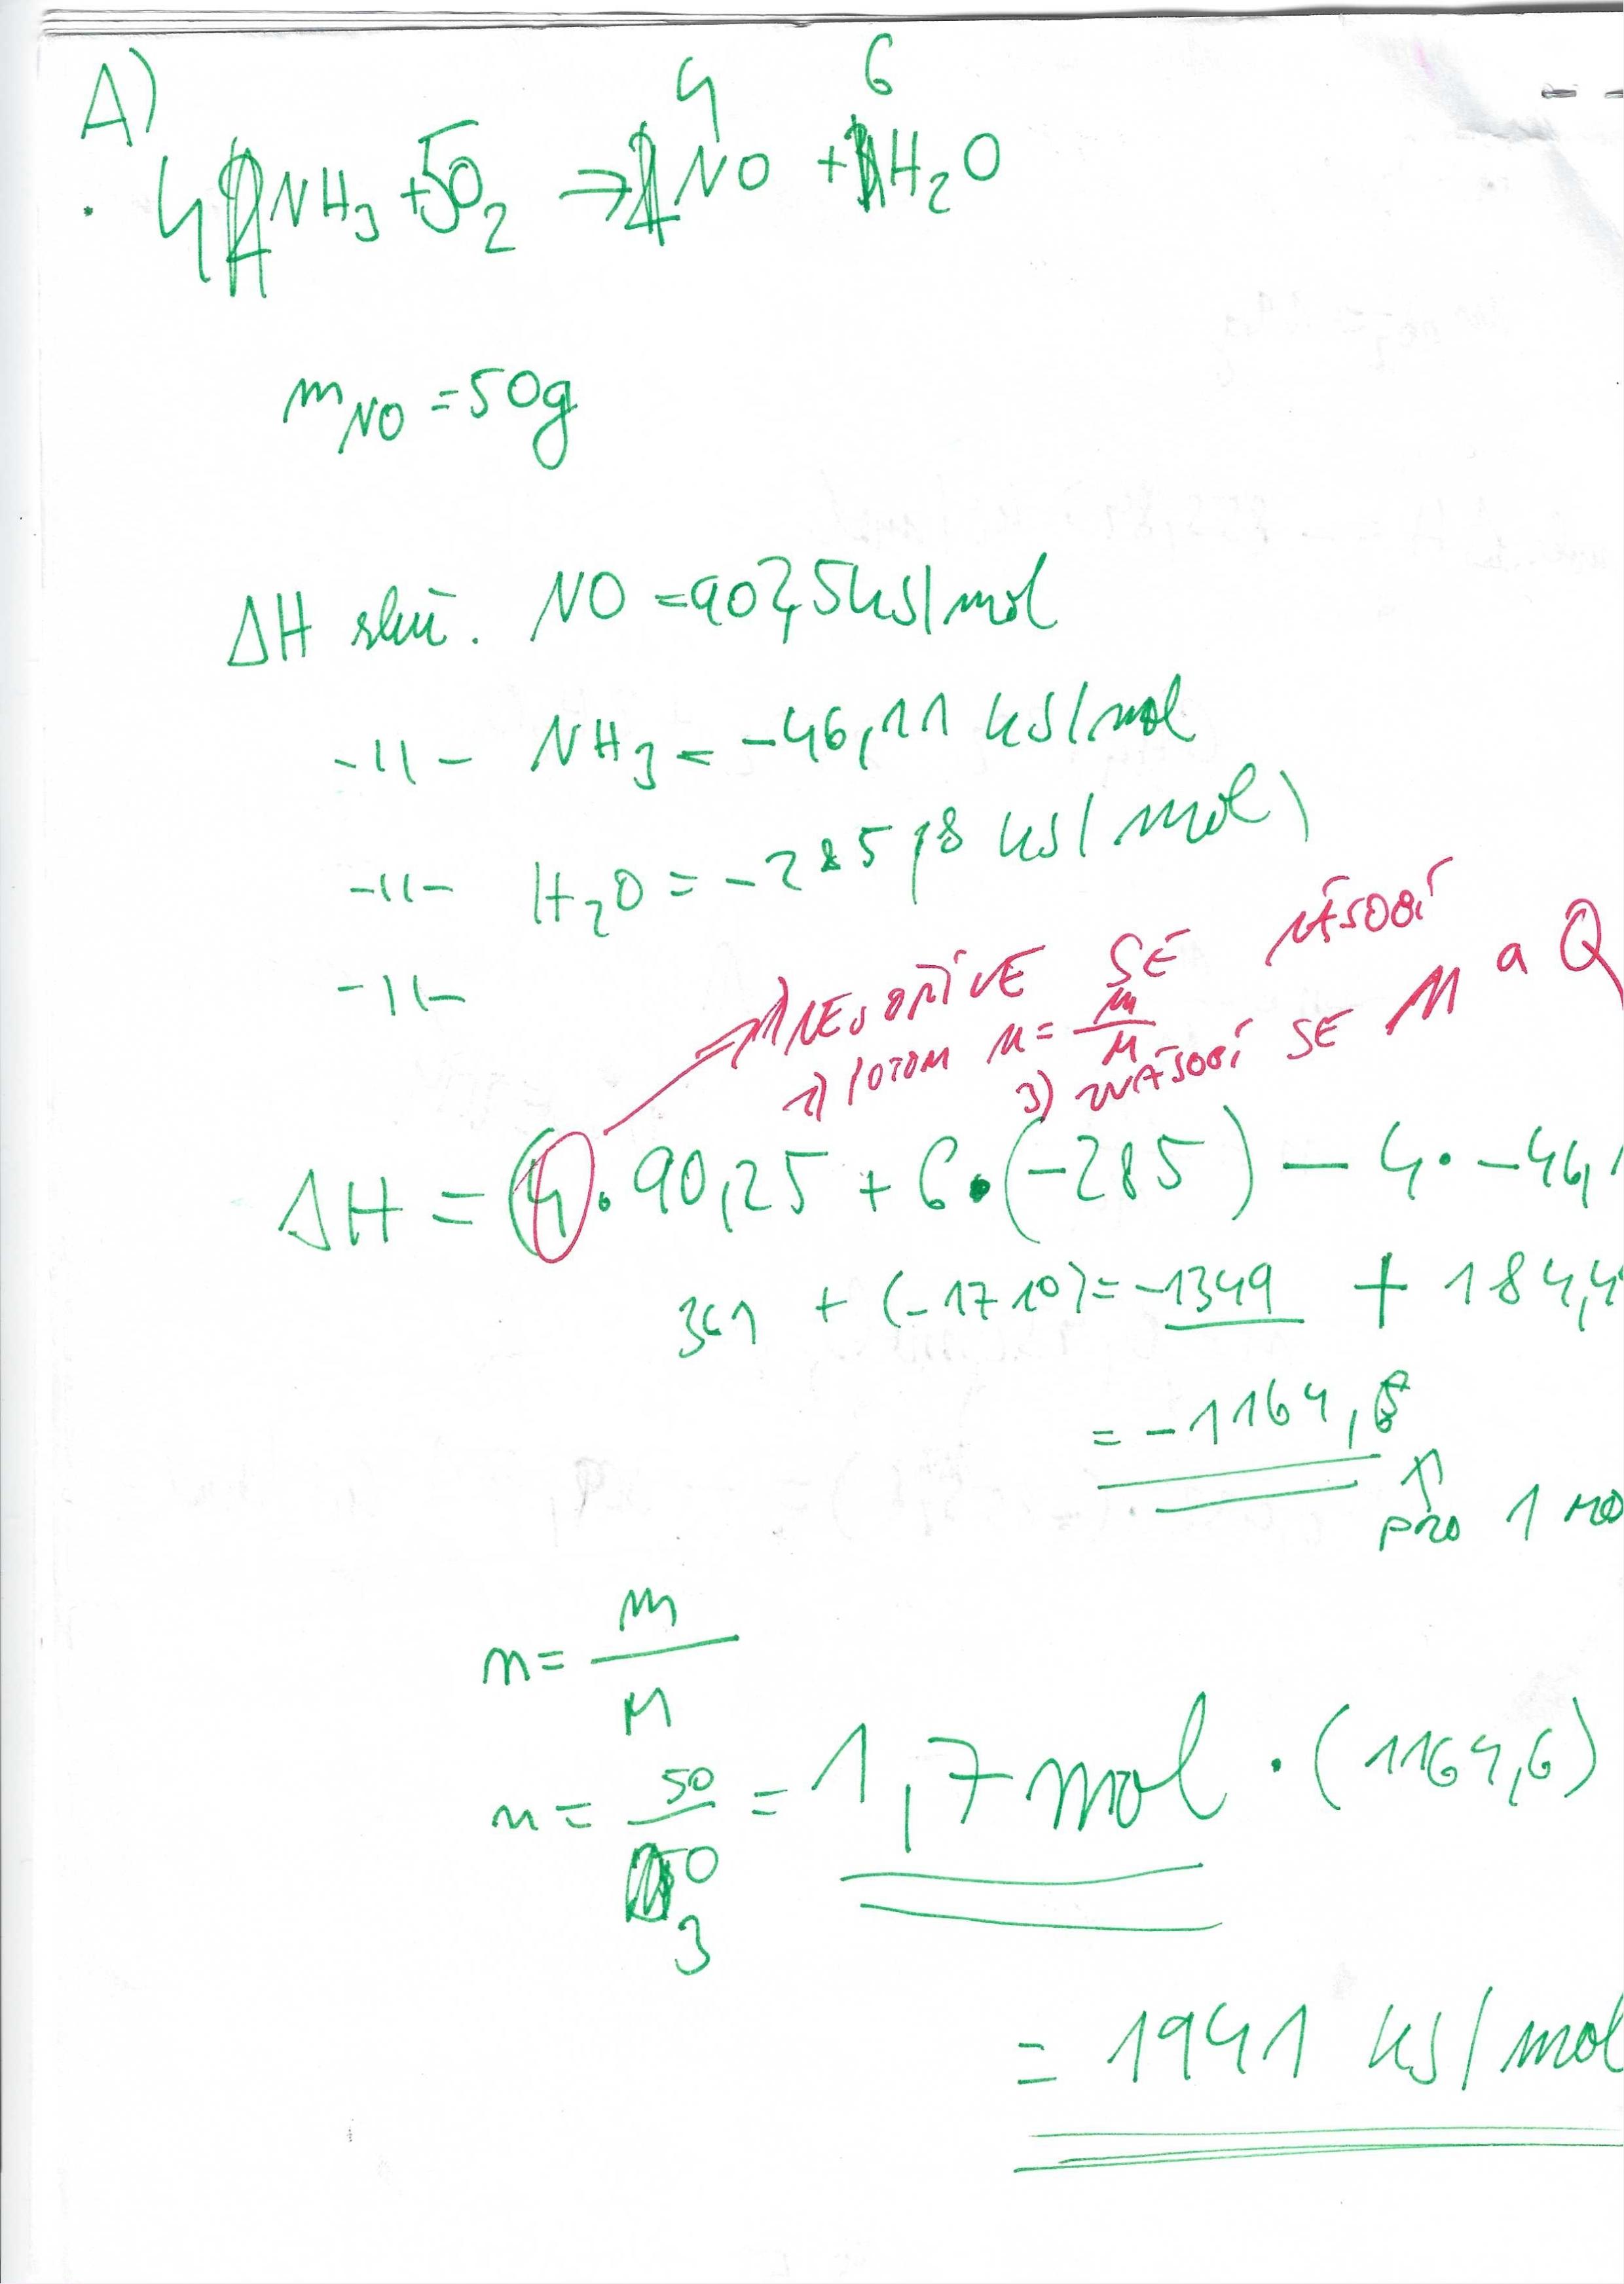 A)
4 6
4 NH3 + 5O2 → NO + H2O
mNO = 50g
ΔH sluč. NO = 90,25 kJ/mol
-11- NH3 = -46,11 kJ/mol
-11- H2O = -285,8 kJ/mol
-11-
1) NEJDŘÍVE SE NÁSOBÍ
2) POTOM n = m/M
3) ZNÁSOBÍ SE n a Q
ΔH = (4 · 90,25 + 6 · (-285) - 4 · -46,1
361 + (-1710) = -1349 + 184,4
= -1164,6
↑
PRO 1 MO
n = m/M
n = 50/30 = 1,7 mol · (1164,6)
= 1941 kJ/mol